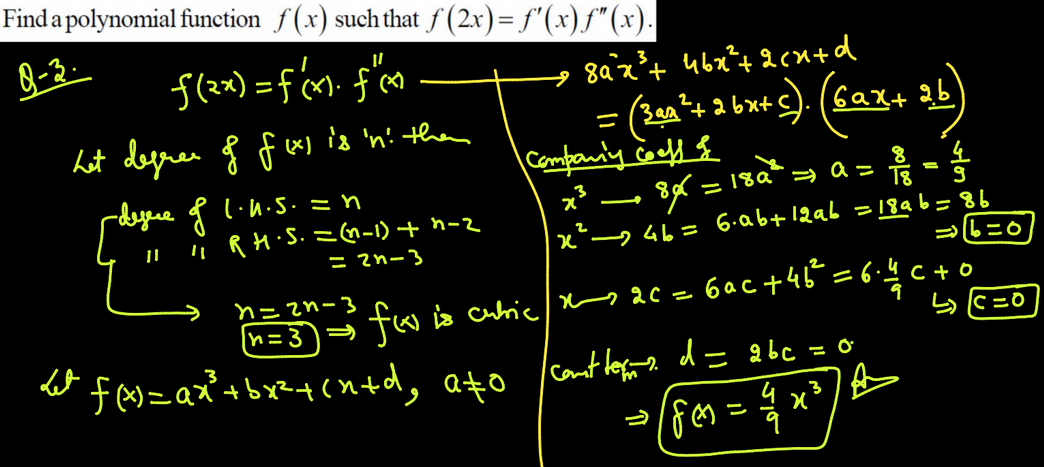 Find a polynomial function f(x) such that f(2x) = f'(x) f"(x).
Q-2.
f(2x) = f'(x). f"(x)
Let degree of f(x) is 'n'. then
degree of L.H.S. = n
" " R.H.S. = (n-1) + n-2
= 2n-3
n = 2n-3
n=3 ⇒ f(x) is cubic
Let f(x) = ax³ + bx² + cx + d, a≠0
→ 8ax³ + 4bx² + 2cx + d
= (3ax² + 2bx + c). (6ax + 2b)
Comparing coeff of
x³ → 8a = 18a² ⇒ a = 8/18 = 4/9
x² → 4b = 6.ab + 12ab = 18ab = 8b
⇒ b=0
x → 2c = 6ac + 4b² = 6.4/9 c + 0
↳ c=0
const term → d = 2bc = 0
⇒ f(x) = 4/9 x³